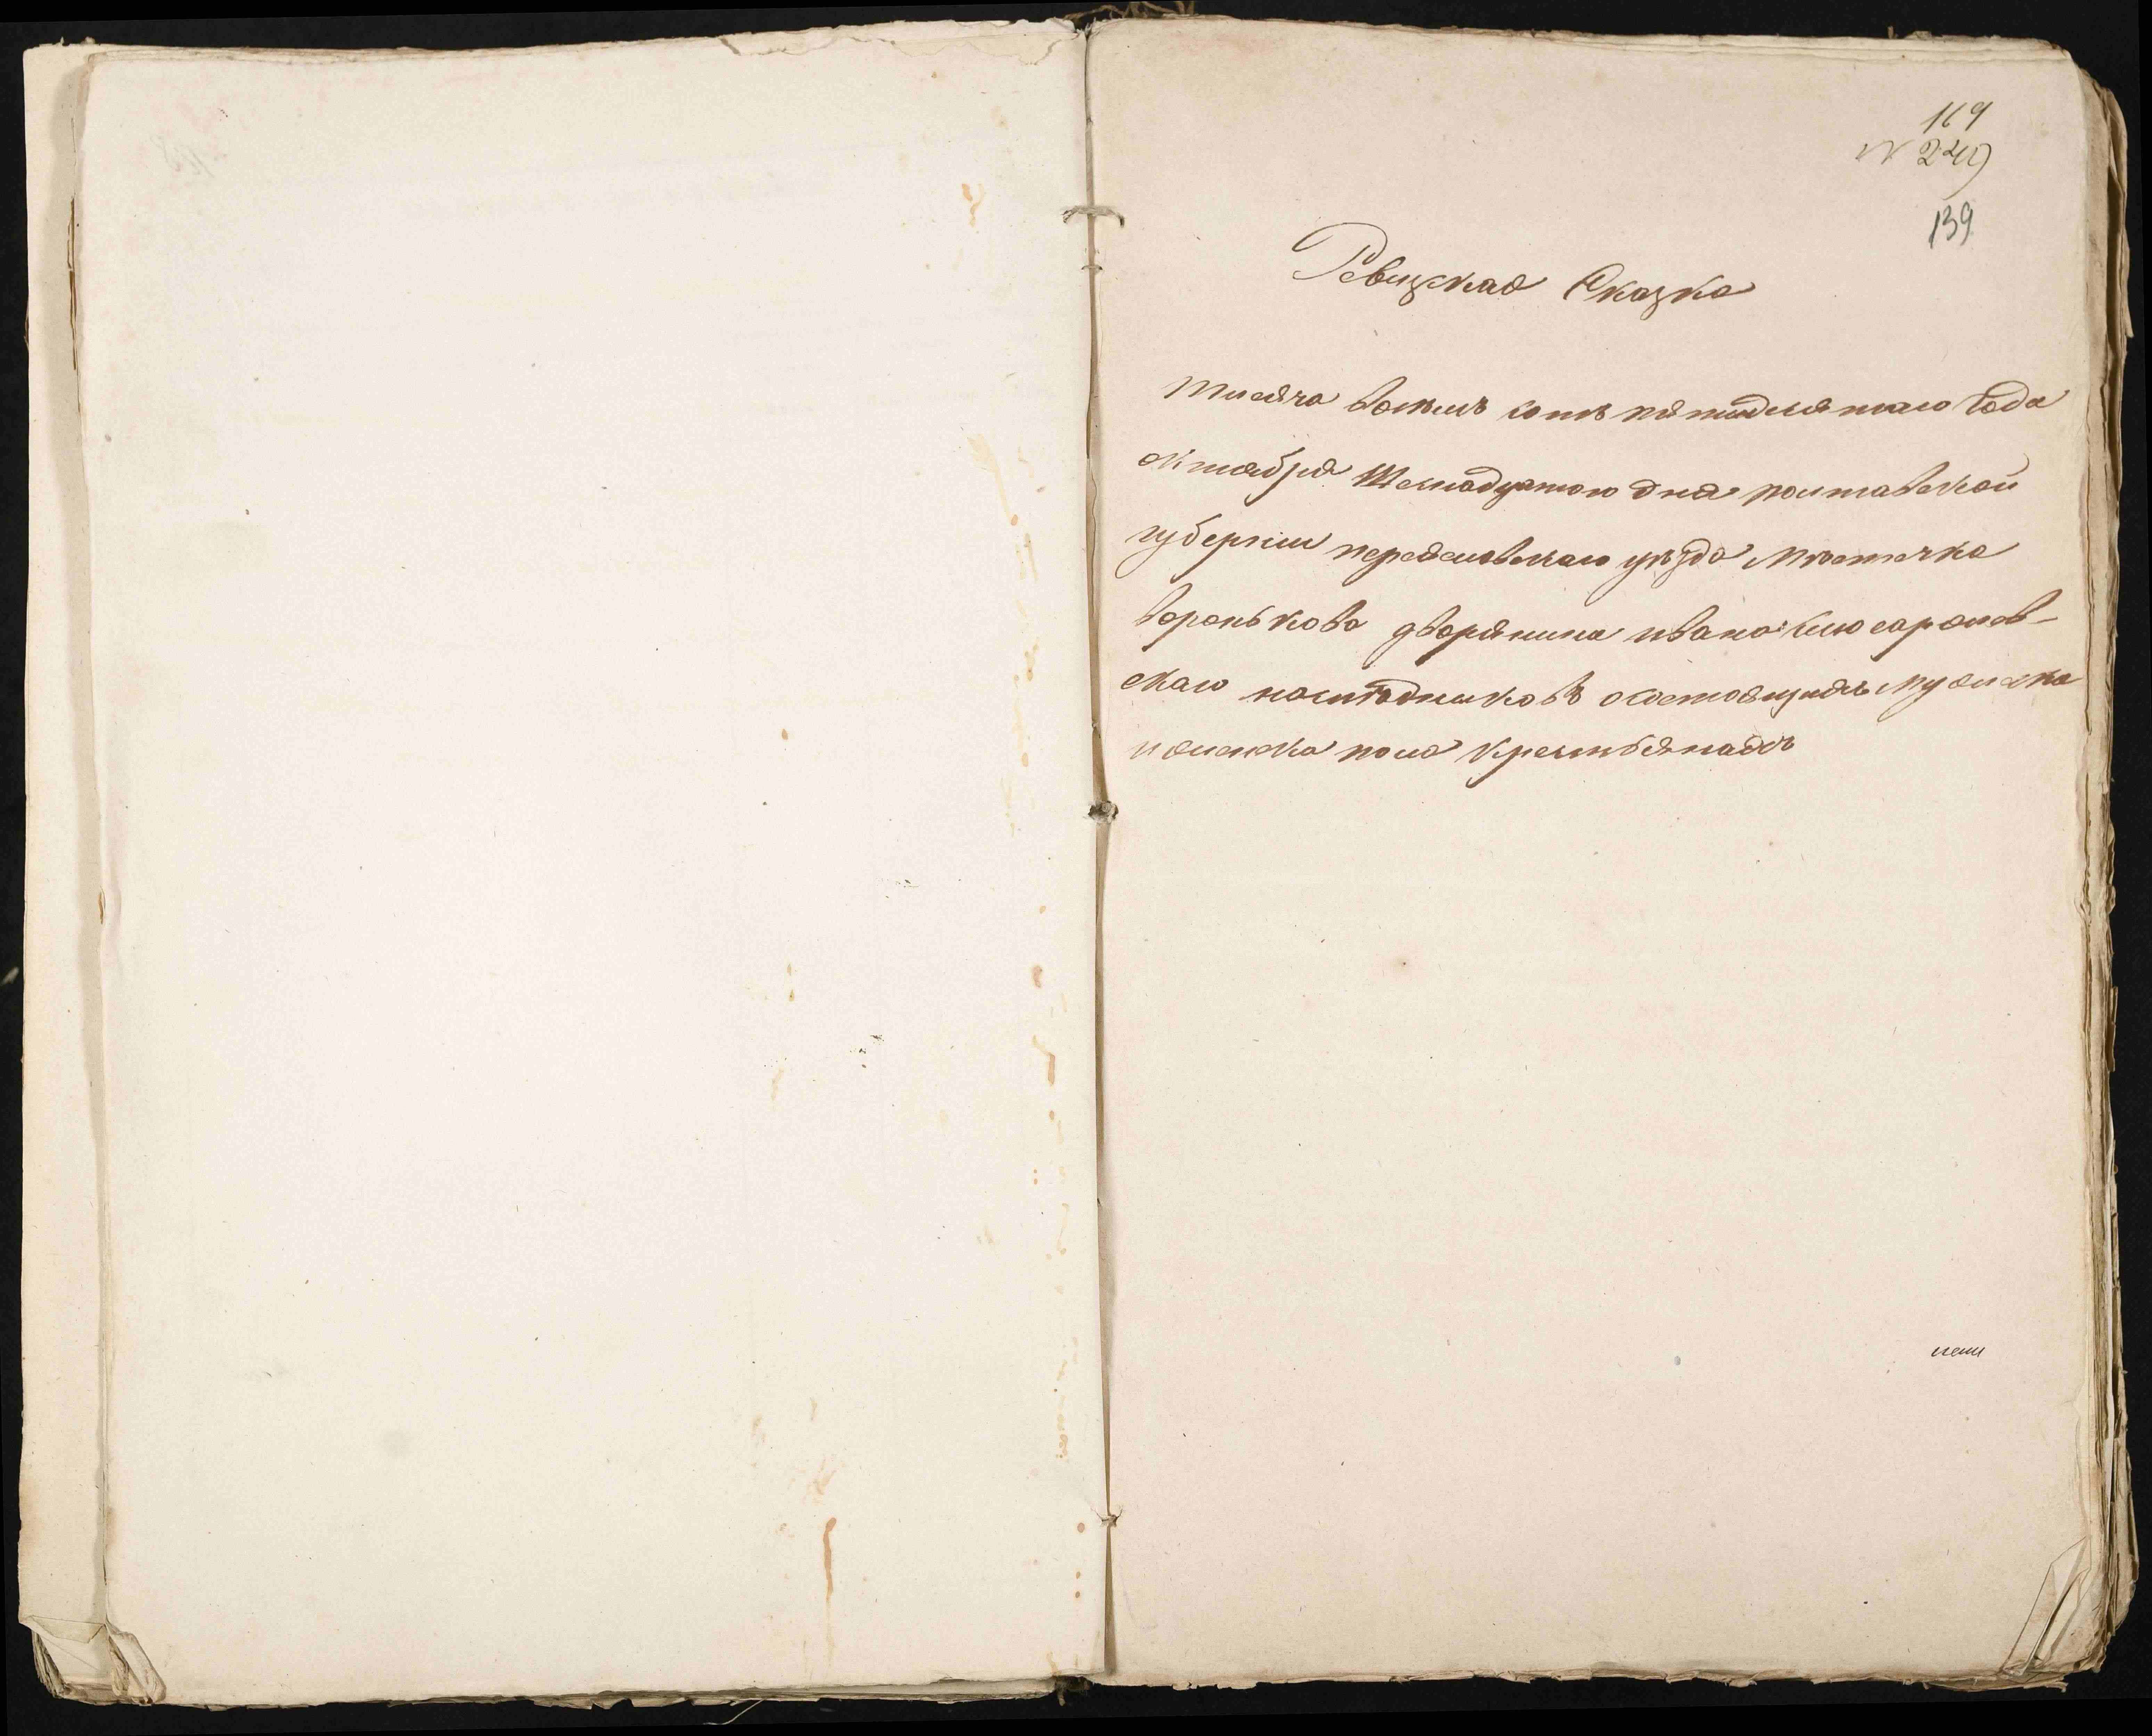 119
№ 249
139
Ревизская Сказка
тисяча восемъ сотъ пятидесятаго года
октября Шеснадцатого дня полтавской
губерніи переяславскаго уѣзда мѣстечка
воронькова дворянина ивана
скаго наслѣдниковъ осостоящихъ мужска
и женска пола крестьянахъ